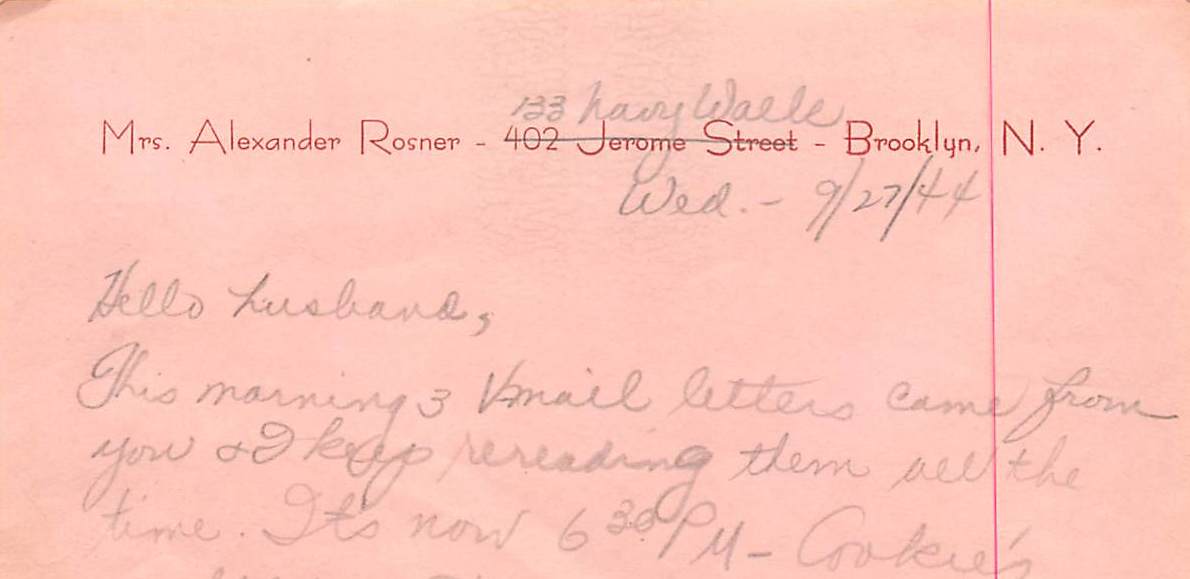 133 Navy Walk
Mrs. Alexander Rosner - 402 Jerome Street - Brooklyn, N. Y.
Wed. - 9/27/44
Hello husband,
This morning 3 Vmail letters came from
you & I keep rereading them all the
time. It's now 6 30 PM - Cookie's